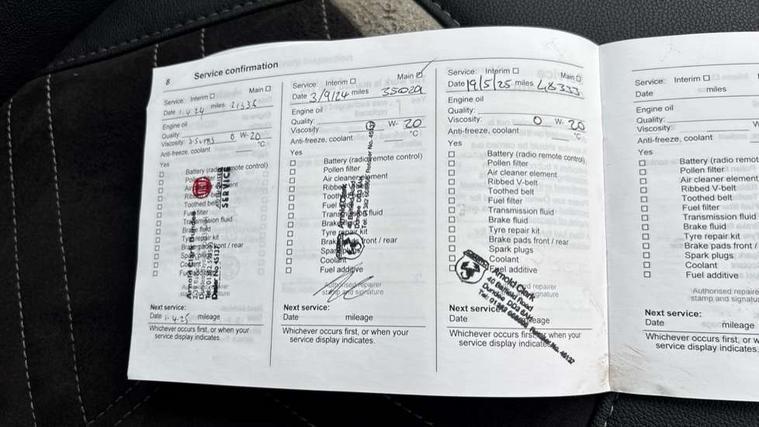 8 Service confirmation
Service: Interim ☐ Main ☐
Date 1.4.24 miles 21336
Engine oil
Quality:
Viscosity: 0 W- 20
Anti-freeze, coolant °C
Yes
☐ Battery (radio remote control)
☐ Pollen filter
☐ Air cleaner element
☐ Ribbed V-belt
☐ Toothed belt
☐ Fuel filter
☐ Transmission fluid
☐ Brake fluid
☐ Tyre repair kit
☐ Brake pads front / rear
☐ Spark plugs
☐ Coolant
☐ Fuel additive
SERVICE
Arnold Clark
Next service:
Date 1.4.25 mileage
Whichever occurs first, or when your
service display indicates.
Service: Interim ☐ Main ☑
Date 3/9/24 miles 35029
Engine oil
Quality:
Viscosity W- 20
Anti-freeze, coolant °C
Yes
☐ Battery (radio remote control)
☐ Pollen filter
☐ Air cleaner element
☐ Ribbed
☐ Toothed
☐ Fuel filter
☐ Transmission fluid
☐ Brake fluid
☐ Tyre repair kit
☐ Brake pads front / rear
☐ Spark
☐ Coolant
☐ Fuel additive
Arnold Clark
Authorised repairer
stamp and signature
Next service:
Date mileage
Whichever occurs first, or when your
service display indicates.
Service: Interim ☐ Main ☐
Date 19/5/25 miles 48333
Engine oil
Quality:
Viscosity: 0 W- 20
Anti-freeze, coolant °C
Yes
☐ Battery (radio remote control)
☐ Pollen filter
☐ Air cleaner element
☐ Ribbed V-belt
☐ Toothed belt
☐ Fuel filter
☐ Transmission fluid
☐ Brake fluid
☐ Tyre repair kit
☐ Brake pads front / rear
☐ Spark plugs
☐ Coolant
☐ Fuel additive
Arnold Clark
Next service:
Date
Whichever occurs first, or when your
service display indicates.
Service: Interim ☐
Date miles
Engine oil
Quality:
Viscosity:
Anti-freeze, coolant
Yes
☐ Battery (radio remot
☐ Pollen filter
☐ Air cleaner element
☐ Ribbed V-belt
☐ Toothed belt
☐ Fuel filter
☐ Transmission fluid
☐ Brake fluid
☐ Tyre repair kit
☐ Brake pads front /
☐ Spark plugs
☐ Coolant
☐ Fuel additive
Authorised repaire
stamp and signatu
Next service:
Date mileage
Whichever occurs first, or w
service display indicates.